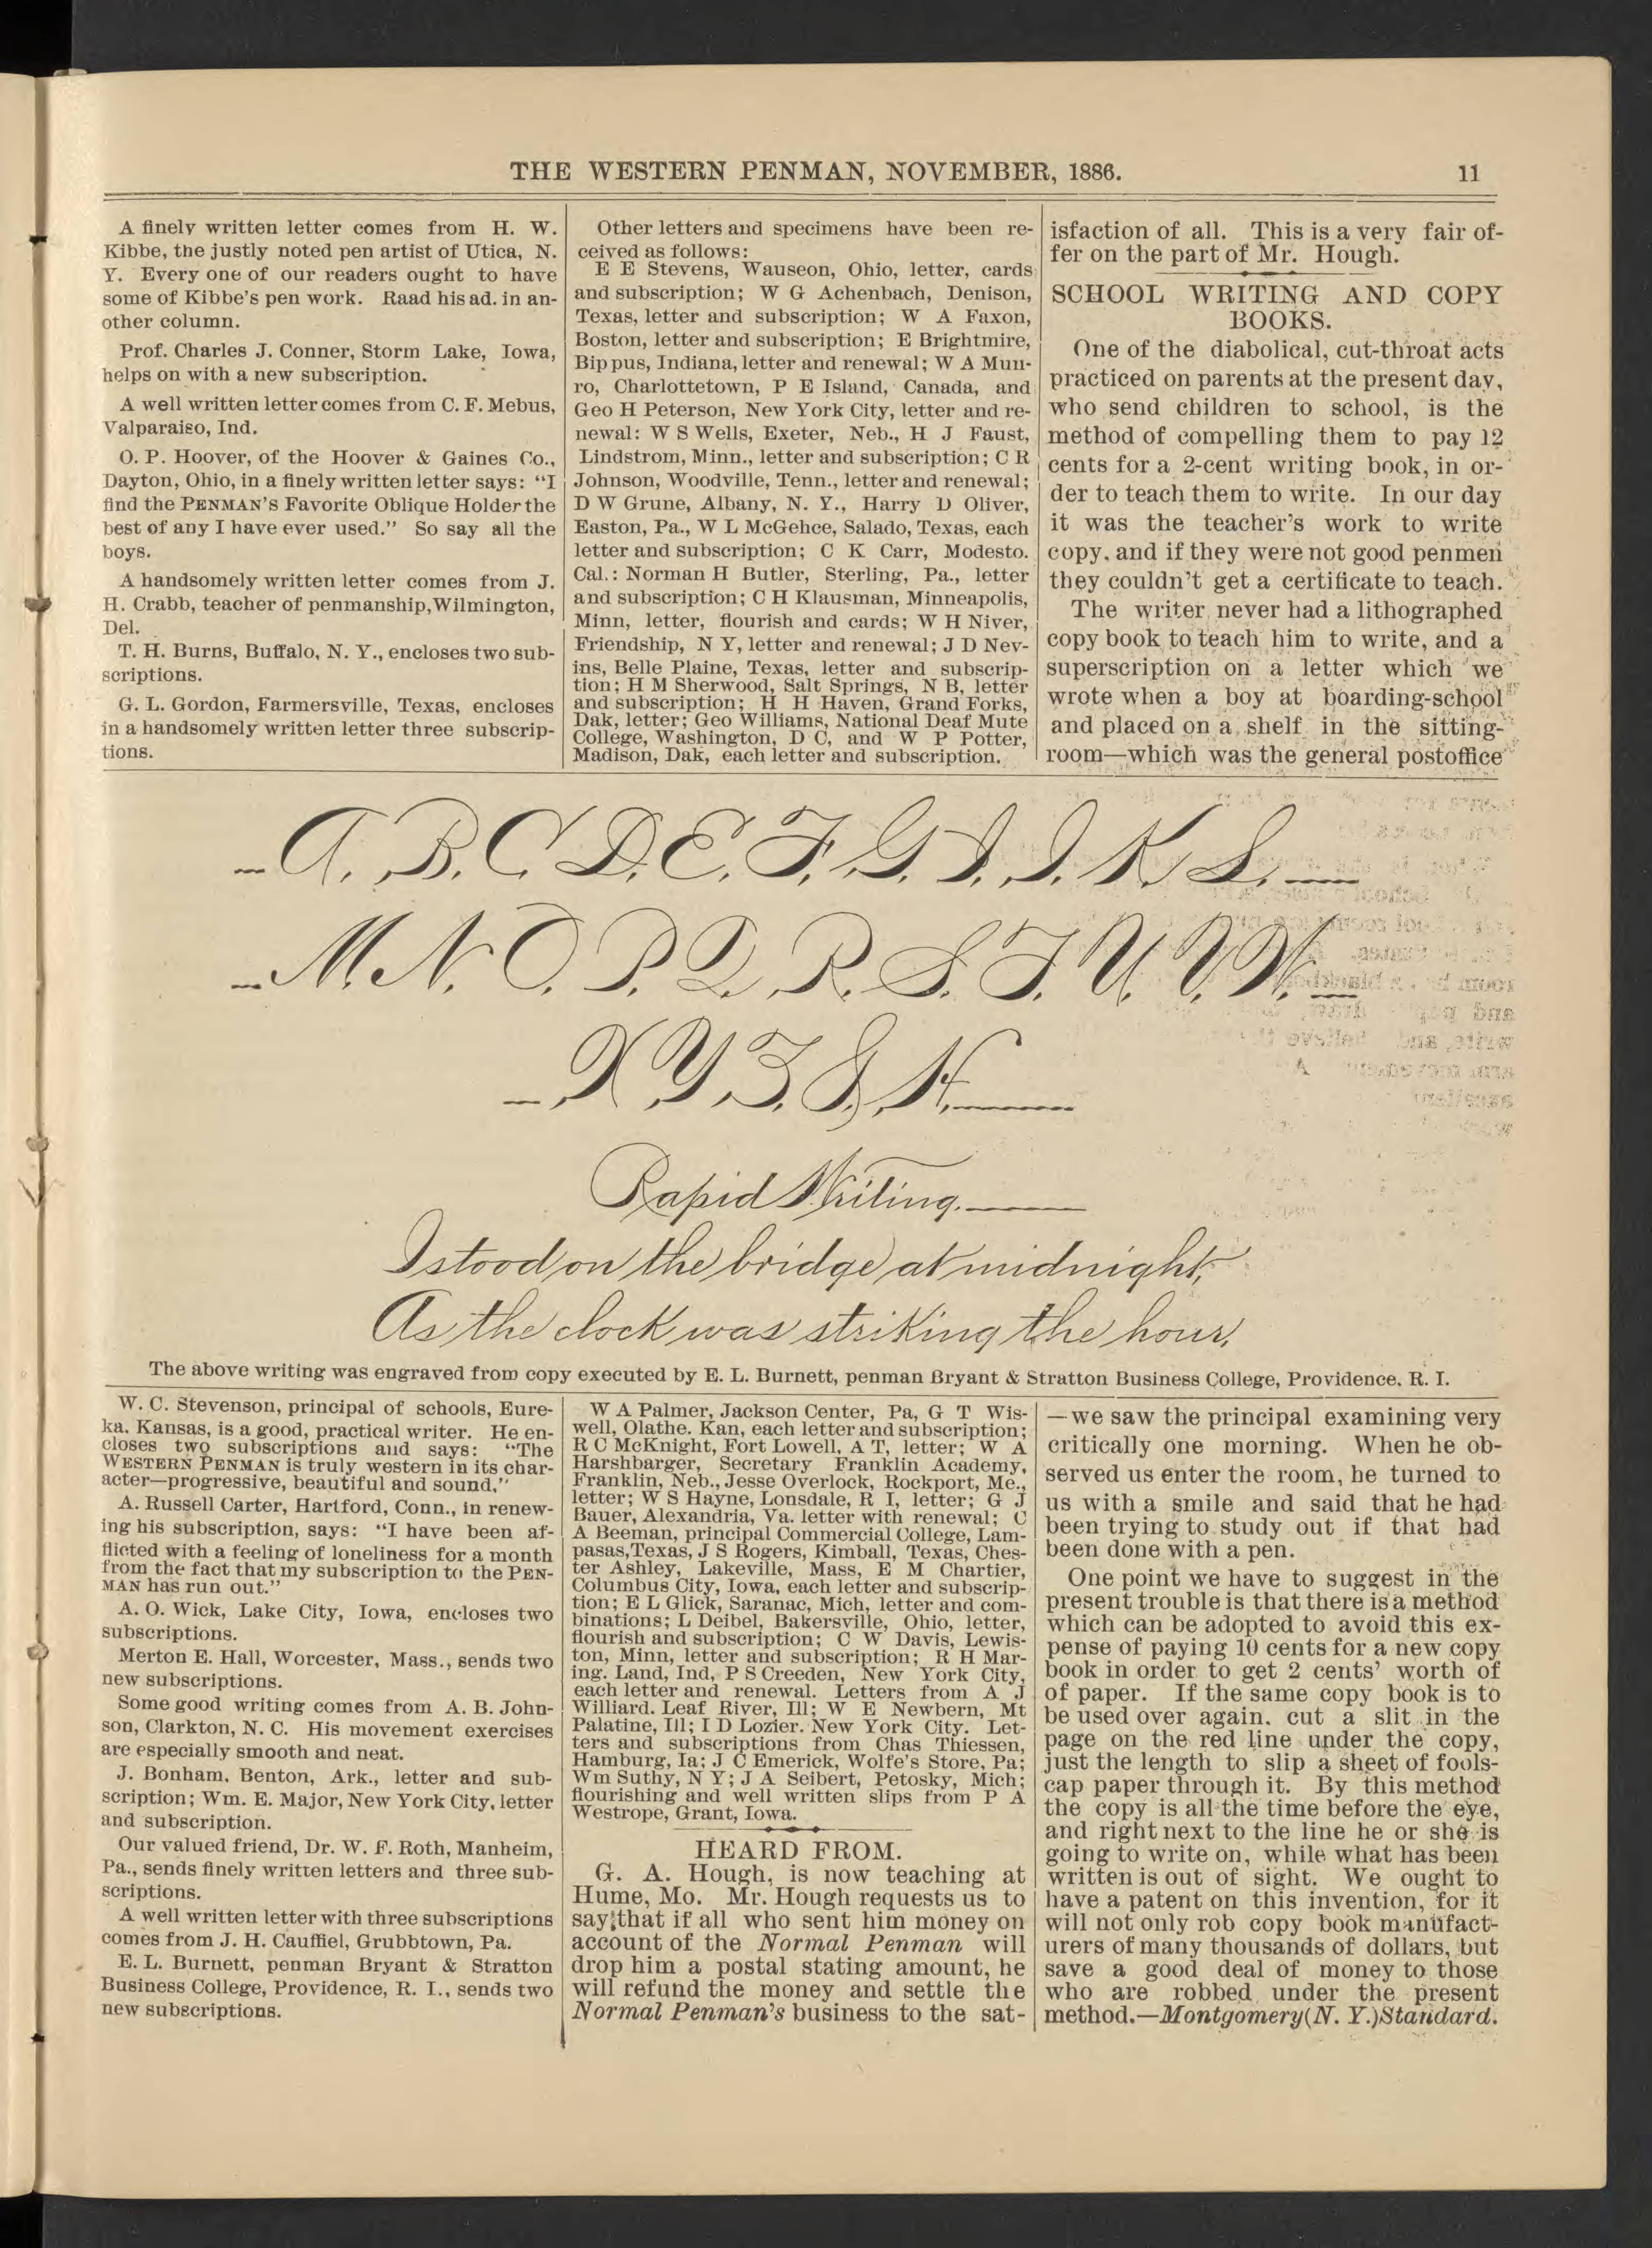 THE WESTERN PENMAN, NOVEMBER, 1886. 11
A finely written letter comes from H. W.
Kibbe, the justly noted pen artist of Utica, N.
Y. Every one of our readers ought to have
some of Kibbe's pen work. Raad his ad. in an-
other column.
Prof. Charles J. Conner, Storm Lake, Iowa,
helps on with a new subscription.
A well written letter comes from C. F. Mebus,
Valparaiso, Ind.
O. P. Hoover, of the Hoover & Gaines Co.,
Dayton, Ohio, in a finely written letter says: "I
find the PENMAN'S Favorite Oblique Holder the
best of any I have ever used." So say all the
boys.
A handsomely written letter comes from J.
H. Crabb, teacher of penmanship, Wilmington,
Del.
T. H. Burns, Buffalo, N. Y., encloses two sub-
scriptions.
G. L. Gordon, Farmersville, Texas, encloses
in a handsomely written letter three subscrip-
tions.
Other letters and specimens have been re-
ceived as follows:
E E Stevens, Wauseon, Ohio, letter, cards
and subscription; W G Achenbach, Denison,
Texas, letter and subscription; W A Faxon,
Boston, letter and subscription; E Brightmire,
Bippus, Indiana, letter and renewal; W A Mun-
ro, Charlottetown, P E Island, Canada, and
Geo H Peterson, New York City, letter and re-
newal: W S Wells, Exeter, Neb., H J Faust,
Lindstrom, Minn., letter and subscription; C R
Johnson, Woodville, Tenn., letter and renewal;
D W Grune, Albany, N. Y., Harry D Oliver,
Easton, Pa., W L McGehce, Salado, Texas, each
letter and subscription; C K Carr, Modesto.
Cal.: Norman H Butler, Sterling, Pa., letter
and subscription; C H Klausman, Minneapolis,
Minn, letter, flourish and cards; W H Niver,
Friendship, N Y, letter and renewal; J D Nev-
ins, Belle Plaine, Texas, letter and subscrip-
tion; H M Sherwood, Salt Springs, N B, letter
and subscription; H H Haven, Grand Forks,
Dak, letter; Geo Williams, National Deaf Mute
College, Washington, D C, and W P Potter,
Madison, Dak, each letter and subscription.
isfaction of all. This is a very fair of-
fer on the part of Mr. Hough.
SCHOOL WRITING AND COPY
BOOKS.
One of the diabolical, cut-throat acts
practiced on parents at the present day,
who send children to school, is the
method of compelling them to pay 12
cents for a 2-cent writing book, in or-
der to teach them to write. In our day
it was the teacher's work to write
copy, and if they were not good penmen
they couldn't get a certificate to teach.
The writer never had a lithographed
copy book to teach him to write, and a
superscription on a letter which we
wrote when a boy at boarding-school
and placed on a shelf in the sitting-
room—which was the general postoffice
A. B. C. D. E. F. G. I. J. K. L.
M. N. O. P. Q. R. S. T. U. V. W.
X Y Z. & H.
Rapid Writing.
I stood on the bridge at midnight,
As the clock was striking the hour,
The above writing was engraved from copy executed by E. L. Burnett, penman Bryant & Stratton Business College, Providence, R. I.
W. C. Stevenson, principal of schools, Eure-
ka, Kansas, is a good, practical writer. He en-
closes two subscriptions and says: "The
WESTERN PENMAN is truly western in its char-
acter—progressive, beautiful and sound,"
A. Russell Carter, Hartford, Conn., in renew-
ing his subscription, says: "I have been af-
flicted with a feeling of loneliness for a month
from the fact that my subscription to the PEN-
MAN has run out."
A. O. Wick, Lake City, Iowa, encloses two
subscriptions.
Merton E. Hall, Worcester, Mass., sends two
new subscriptions.
Some good writing comes from A. B. John-
son, Clarkton, N. C. His movement exercises
are especially smooth and neat.
J. Bonham, Benton, Ark., letter and sub-
scription; Wm. E. Major, New York City, letter
and subscription.
Our valued friend, Dr. W. F. Roth, Manheim,
Pa., sends finely written letters and three sub-
scriptions.
A well written letter with three subscriptions
comes from J. H. Cauffiel, Grubbtown, Pa.
E. L. Burnett, penman Bryant & Stratton
Business College, Providence, R. I., sends two
new subscriptions.
W A Palmer, Jackson Center, Pa, G T Wis-
well, Olathe. Kan, each letter and subscription;
R C McKnight, Fort Lowell, A T, letter; W A
Harshbarger, Secretary Franklin Academy,
Franklin, Neb., Jesse Overlock, Rockport, Me.,
letter; W S Hayne, Lonsdale, R I, letter; G J
Bauer, Alexandria, Va. letter with renewal; C
A Beeman, principal Commercial College, Lam-
pasas, Texas, J S Rogers, Kimball, Texas, Ches-
ter Ashley, Lakeville, Mass, E M Chartier,
Columbus City, Iowa, each letter and subscrip-
tion; E L Glick, Saranac, Mich, letter and com-
binations; L Deibel, Bakersville, Ohio, letter,
flourish and subscription; C W Davis, Lewis-
ton, Minn, letter and subscription; R H Mar-
ing. Land, Ind, P S Creeden, New York City,
each letter and renewal. Letters from A J
Williard. Leaf River, Ill; W E Newbern, Mt
Palatine, Ill; I D Lozier. New York City. Let-
ters and subscriptions from Chas Thiessen,
Hamburg, Ia; J C Emerick, Wolfe's Store, Pa;
Wm Suthy, N Y; J A Seibert, Petosky, Mich;
flourishing and well written slips from P A
Westrope, Grant, Iowa.
HEARD FROM.
G. A. Hough, is now teaching at
Hume, Mo. Mr. Hough requests us to
say that if all who sent him money on
account of the Normal Penman will
drop him a postal stating amount, he
will refund the money and settle the
Normal Penman's business to the sat-
—we saw the principal examining very
critically one morning. When he ob-
served us enter the room, he turned to
us with a smile and said that he had
been trying to study out if that had
been done with a pen.
One point we have to suggest in the
present trouble is that there is a method
which can be adopted to avoid this ex-
pense of paying 10 cents for a new copy
book in order to get 2 cents' worth of
of paper. If the same copy book is to
be used over again, cut a slit in the
page on the red line under the copy,
just the length to slip a sheet of fools-
cap paper through it. By this method
the copy is all the time before the eye,
and right next to the line he or she is
going to write on, while what has been
written is out of sight. We ought to
have a patent on this invention, for it
will not only rob copy book manufact-
urers of many thousands of dollars, but
save a good deal of money to those
who are robbed under the present
method.—Montgomery (N. Y.) Standard.